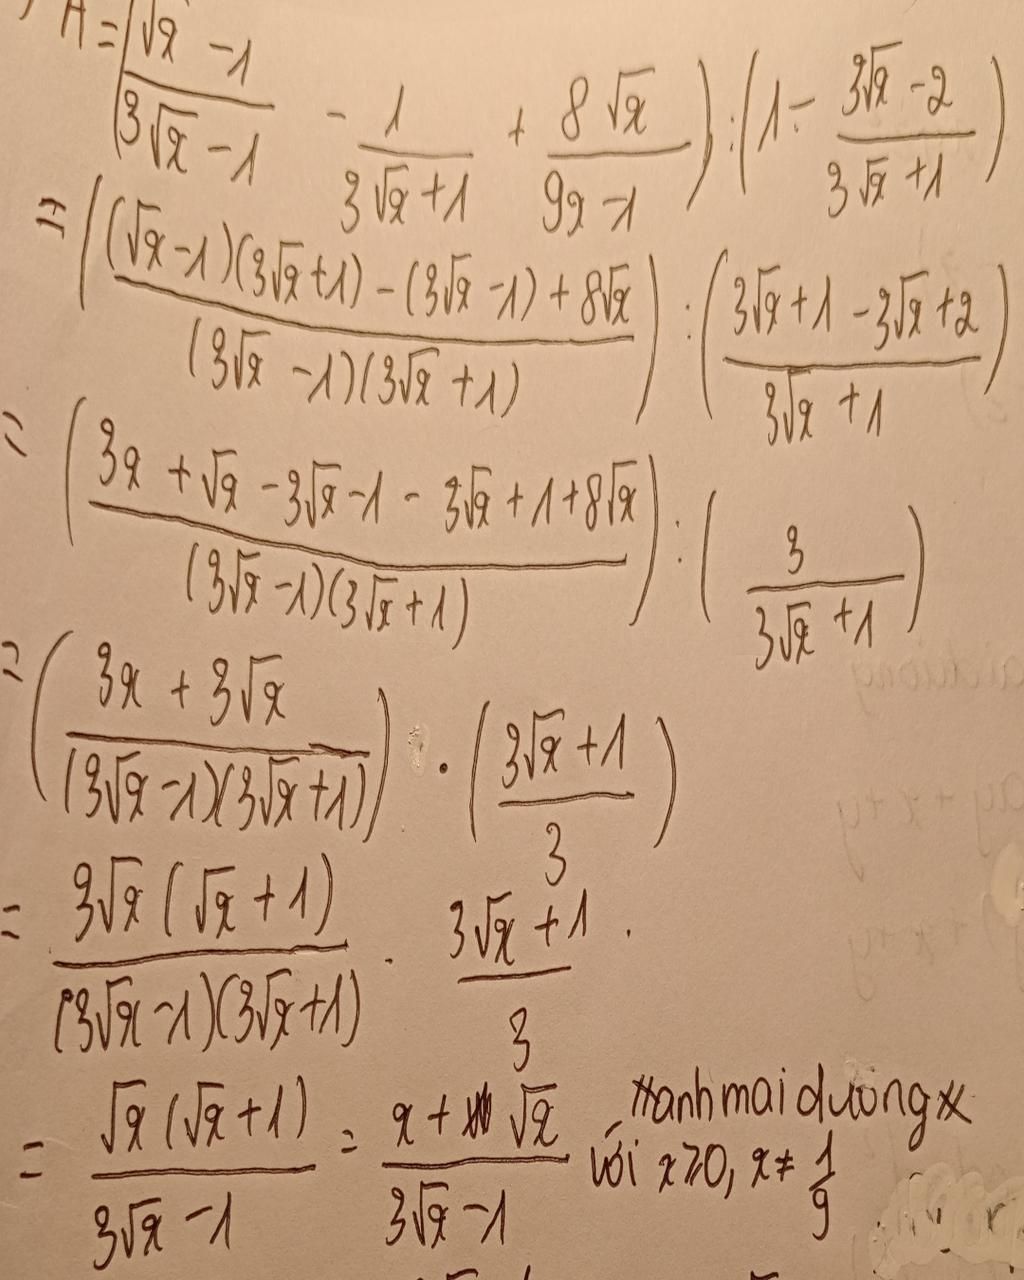 A = ((√x - 1)/(3√x - 1) - 1/(3√x + 1) + 8√x/(9x - 1)) : (1 - (3√x - 2)/(3√x + 1))
= (((√x - 1)(3√x + 1) - (3√x - 1) + 8√x)/((3√x - 1)(3√x + 1))) : ((3√x + 1 - 3√x + 2)/(3√x + 1))
= ((3x + √x - 3√x - 1 - 3√x + 1 + 8√x)/((3√x - 1)(3√x + 1))) : (3/(3√x + 1))
= ((3x + 3√x)/((3√x - 1)(3√x + 1))) . ((3√x + 1)/3)
= (3√x(√x + 1))/((3√x - 1)(3√x + 1)) . (3√x + 1)/3 .
= (√x(√x + 1))/(3√x - 1) = (x + √x)/(3√x - 1)
*anhmaiduong*
với x ≥ 0, x ≠ 1/9